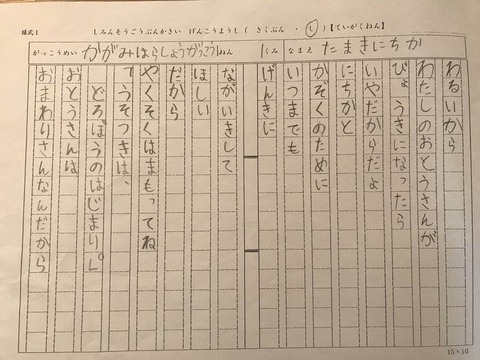 様式1
しみんそうごうぶんかさい げんこうようし ( さくぶん ・ し ) 【ていがくねん】
がっこうめい かがみはらしょうがっこう 1ねん 1くみ なまえ たまきにちか
わるいから
わたしのおとうさんが
びょうきになったら
いやだからだよ
にちかと
かぞくのために
いつまでも
げんきに
ながいきして
ほしい
だから
やくそくはまもってね
「うそつきは、
どろぼうのはじまり。」
おとうさんは
おまわりさんなんだから
15×16